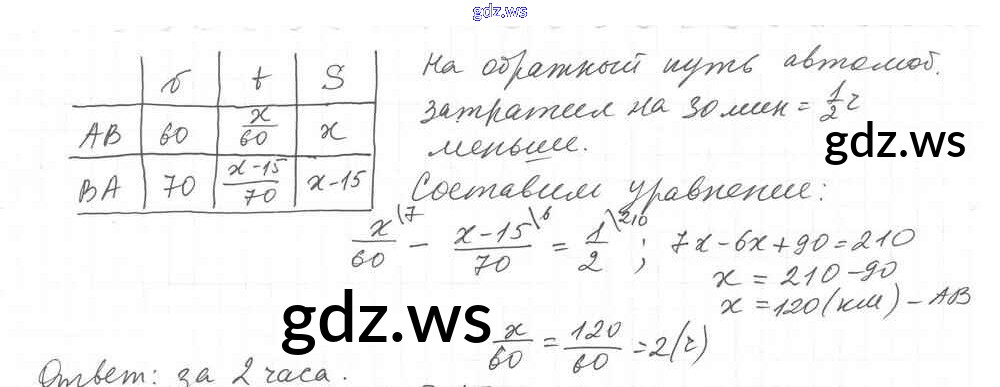 gdz.ws
v t S
AB 60 x/60 x
BA 70 x-15/70 x-15
На обратный путь автомоб.
затратил на 30 мин = 1/2 ч
меньше.
gdz.ws
Составим уравнение:
x/60 \7 - x-15/70 \6 = 1/2 \210 ; 7x-6x+90=210
x = 210-90
x = 120(км) - AB
gdz.ws
x/60 = 120/60 = 2(ч)
Ответ: за 2 часа.